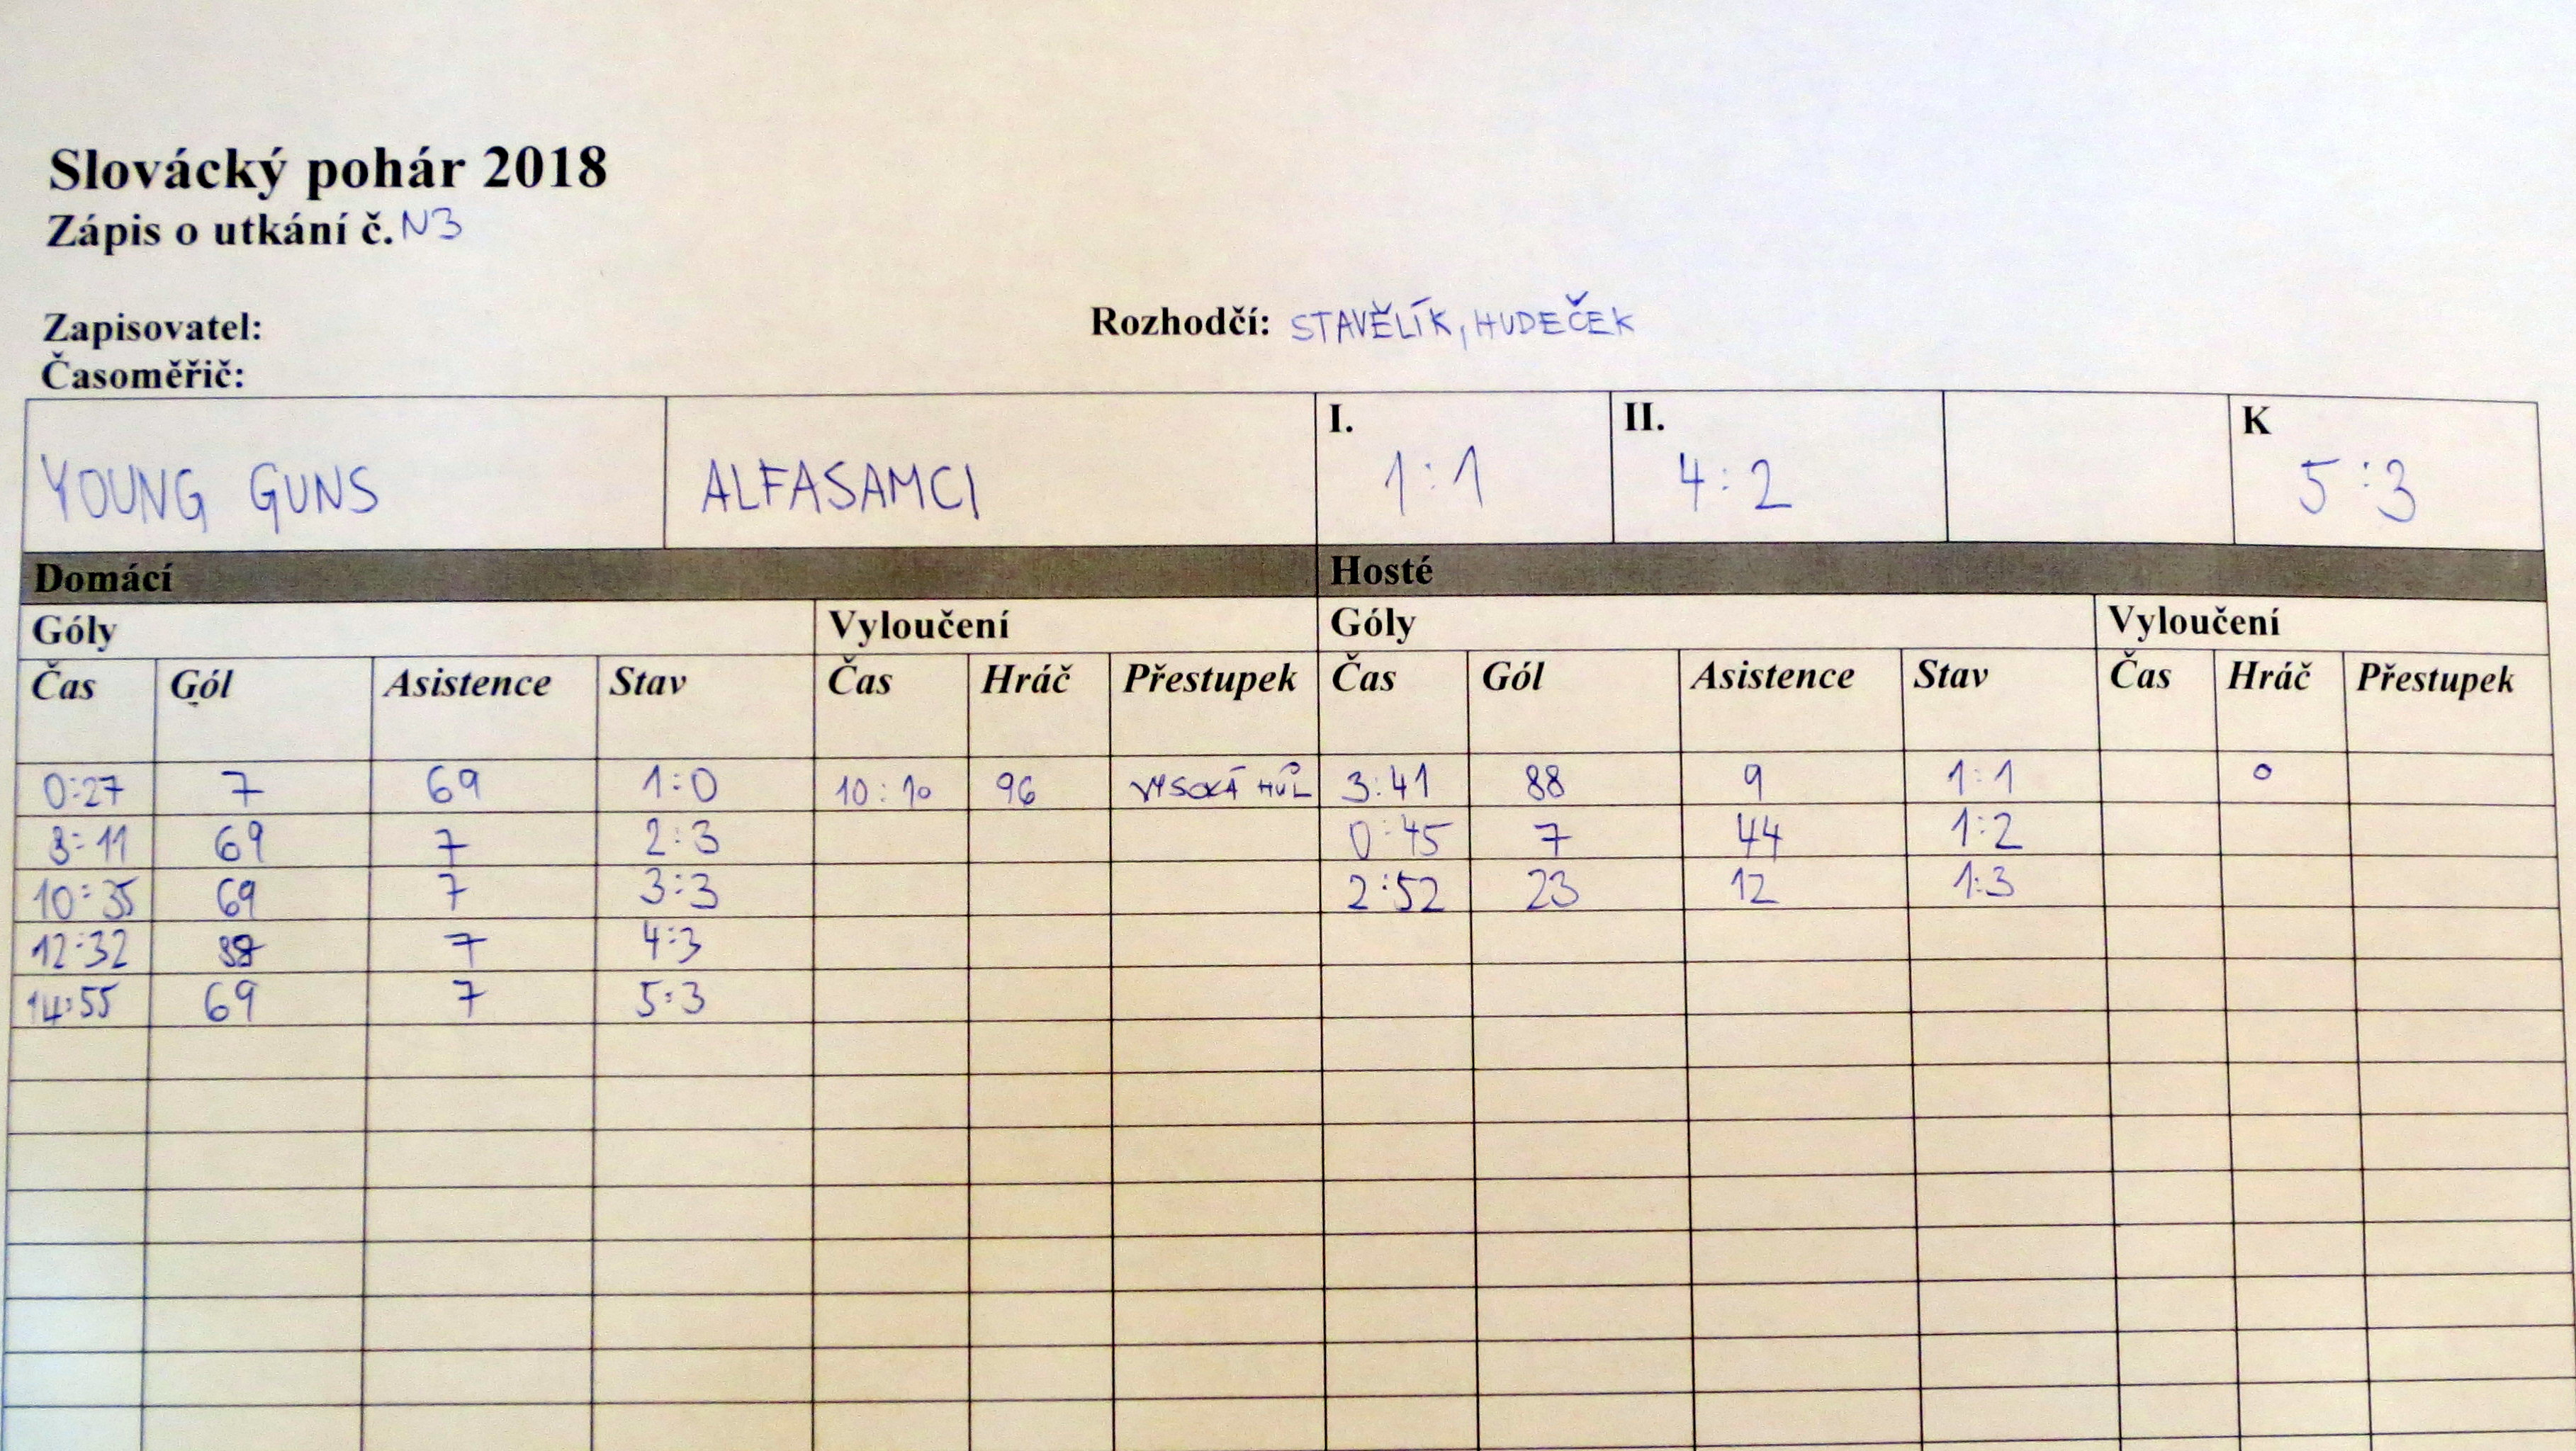 Slovácký pohár 2018
Zápis o utkání č. N3
Zapisovatel:
Rozhodčí: STAVĚLÍK, HUDEČEK
Časoměřič:
YOUNG GUNS ALFASAMCI I. 1:1 II. 4:2 K 5:3
Domácí Hosté
Góly Vyloučení Góly Vyloučení
Čas Gól Asistence Stav Čas Hráč Přestupek Čas Gól Asistence Stav Čas Hráč Přestupek
0:27 7 69 1:0 10:10 96 VYSOKÁ HŮL 3:41 88 9 1:1 0
8:11 69 7 2:3 0:45 7 44 1:2
10:35 69 7 3:3 2:52 23 12 1:3
12:32 7 4:3
14:55 69 7 5:3